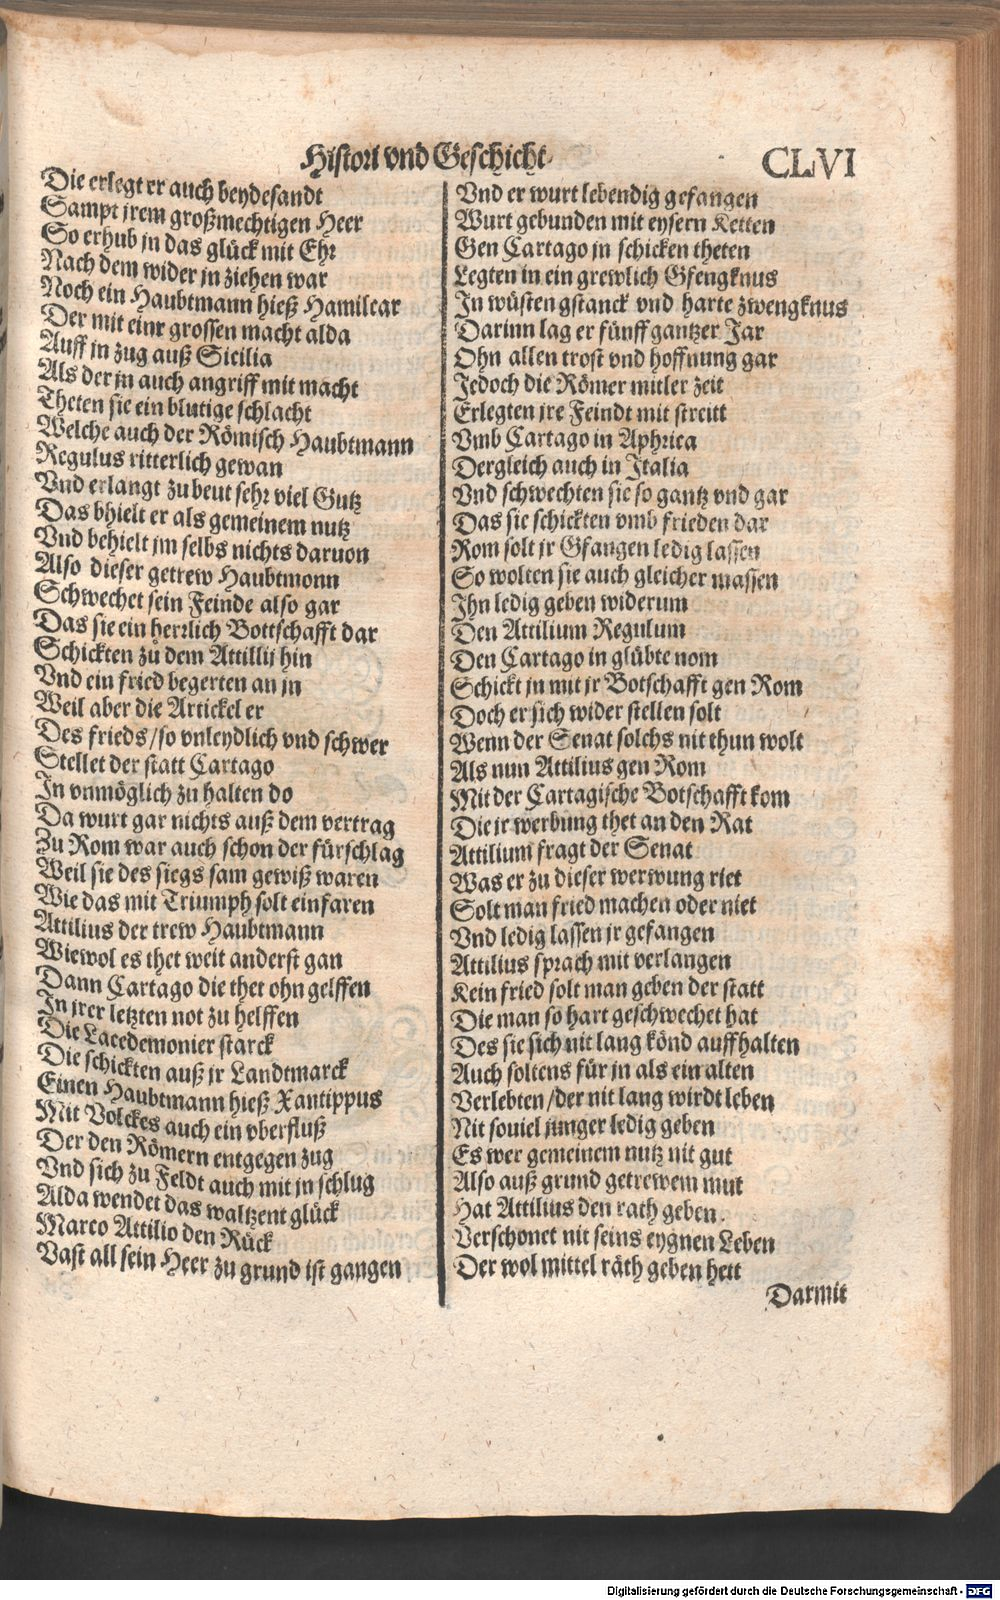 Histori vnd Geschicht. CLVI
Die erlegt er auch beydesandt
Sampt jrem großmechtigen Heer
So erhub jn das glück mit Ehr
Nach dem wider jn ziehen war
Noch ein Haubtmann hieß Hamilcar
Der mit einr grossen macht alda
Auff jn zug auß Sicilia
Als der jn auch angriff mit macht
Theten sie ein blutige schlacht
Welche auch der Römisch Haubtmann
Regulus ritterlich gewan
Vnd erlangt zu beut sehr viel Gutz
Das bhielt er als gemeinem nutz
Vnd behielt jm selbs nichts daruon
Also dieser getrew Haubtmonn
Schwechet sein Feinde also gar
Das sie ein herrlich Bottschafft dar
Schickten zů dem Attilij hin
Vnd ein fried begerten an jn
Weil aber die Artickel er
Des frieds/so vnleydlich vnd schwer
Stellet der statt Cartago
In vnmöglich zu halten do
Da wurt gar nichts auß dem vertrag
Zu Rom war auch schon der fürschlag
Weil sie des siegs sam gewiß waren
Wie das mit Triumph solt einfaren
Attilius der trew Haubtmann
Wiewol es thet weit anderst gan
Dann Cartago die thet ohn gelffen
In jrer letzten not zu helffen
Die Lacedemonier starck
Die schickten auß jr Landtmarck
Einen Haubtmann hieß Xantippus
Mit Volckes auch ein vberfluß
Der den Römern entgegen zug
Vnd sich zu Feldt auch mit jn schlug
Alda wendet das waltzent glück
Marco Attilio den Rück
Vast all sein Heer zu grund ist gangen
Vnd er wurt lebendig gefangen
Wurt gebunden mit eysern Ketten
Gen Cartago jn schicken theten
Legten in ein grewlich Gfengknus
In wüsten gstanck vnd harte zwengknus
Darinn lag er fünff gantzer Jar
Ohn allen trost vnd hoffnung gar
Jedoch die Römer mitler zeit
Erlegten jre Feindt mit streitt
Vmb Cartago in Aphrica
Dergleich auch in Italia
Vnd schwechten sie so gantz vnd gar
Das sie schickten vmb frieden dar
Rom solt jr Gfangen ledig lassen
So wolten sie auch gleicher massen
Ihn ledig geben widerum
Den Attilium Regulum
Den Cartago in glübte nom
Schickt jn mit jr Botschafft gen Rom
Doch er sich wider stellen solt
Wenn der Senat solchs nit thun wolt
Als nun Attilius gen Rom
Mit der Cartagische Botschafft kom
Die jr werbung thet an den Rat
Attilium fragt der Senat
Was er zu dieser werwung riet
Solt man fried machen oder niet
Vnd ledig lassen jr gefangen
Attilius sprach mit verlangen
Kein fried solt man geben der statt
Die man so hart geschwechet hat
Des sie sich nit lang könd auffhalten
Auch soltens für jn als ein alten
Verlebten/der nit lang wirdt leben
Nit souiel junger ledig geben
Es wer gemeinem nutz nit gut
Also auß grund getrewem mut
Hat Attilius den rath geben.
Verschonet nit seins eygnen Leben
Der wol mittel räth geben hett
Darmit
Digitalisierung gefördert durch die Deutsche Forschungsgemeinschaft - DFG